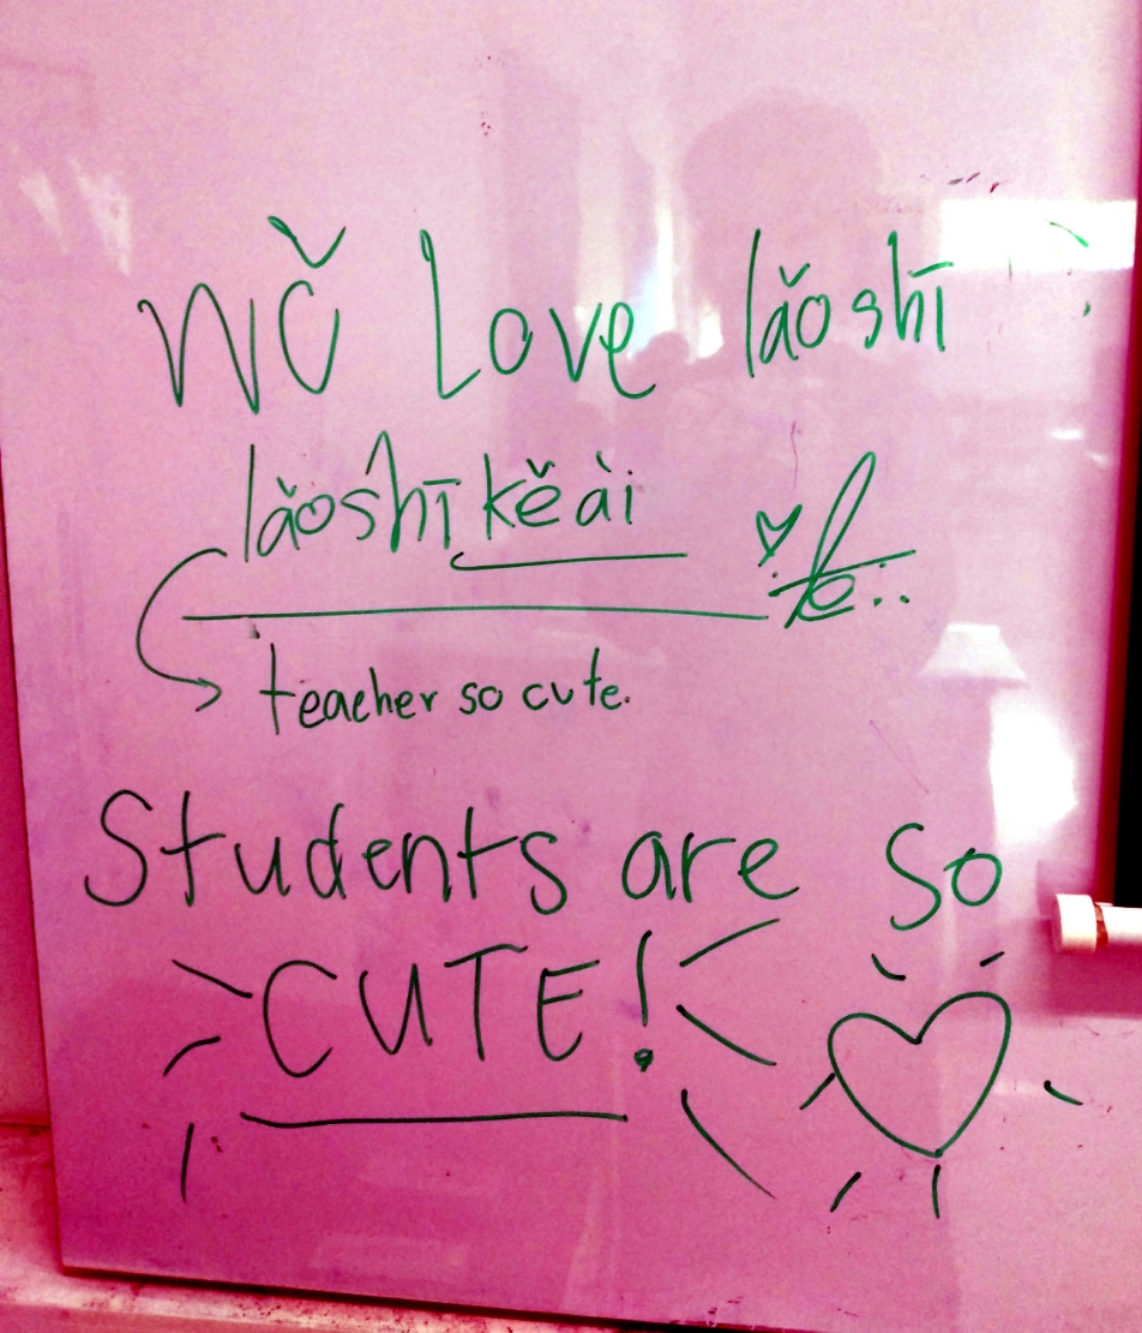 wǒ Love lǎoshī
lǎoshī kě ài
teacher so cute.
Students are so
CUTE!